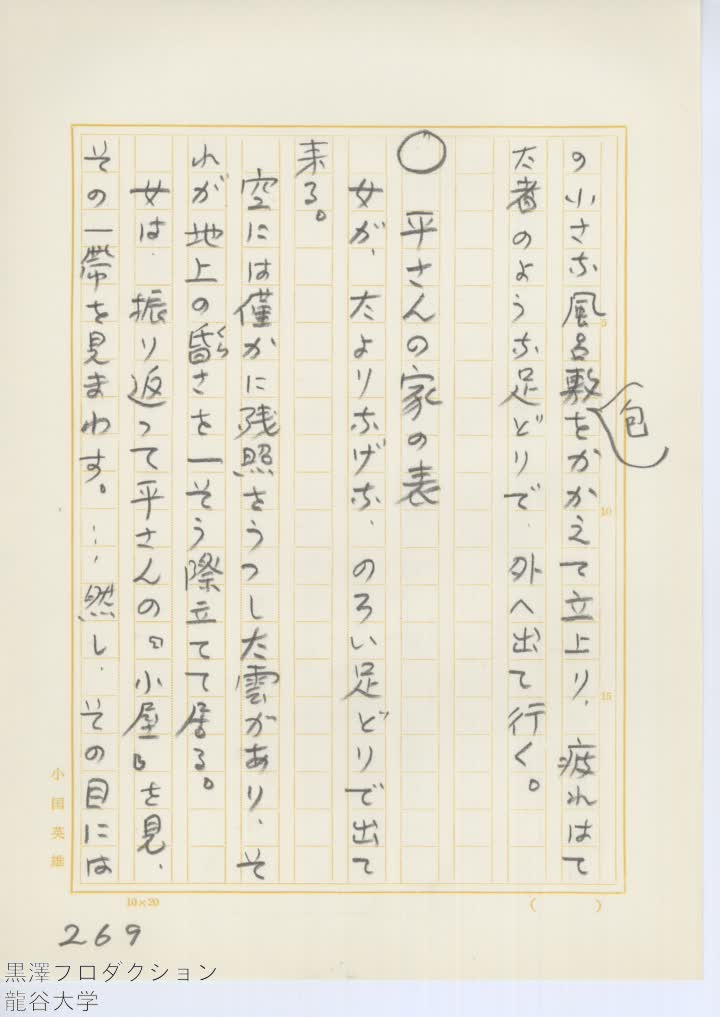 の小さな風呂敷包をかかえて立上り、疲れはて
た者のような足どりで、外へ出て行く。
○　平さんの家の表
女が、たよりなげな、のろい足どりで出て
来る。
空には僅かに残照をうつした雲があり、そ
れが地上の昏さを一そう際立てて居る。
くら
女は、振り返って平さんの『小屋』を見、
その一帯を見まわす。…、然し、その目には
5
10
15
小国英雄
10×20
(　　)
269
黒澤プロダクション
龍谷大学